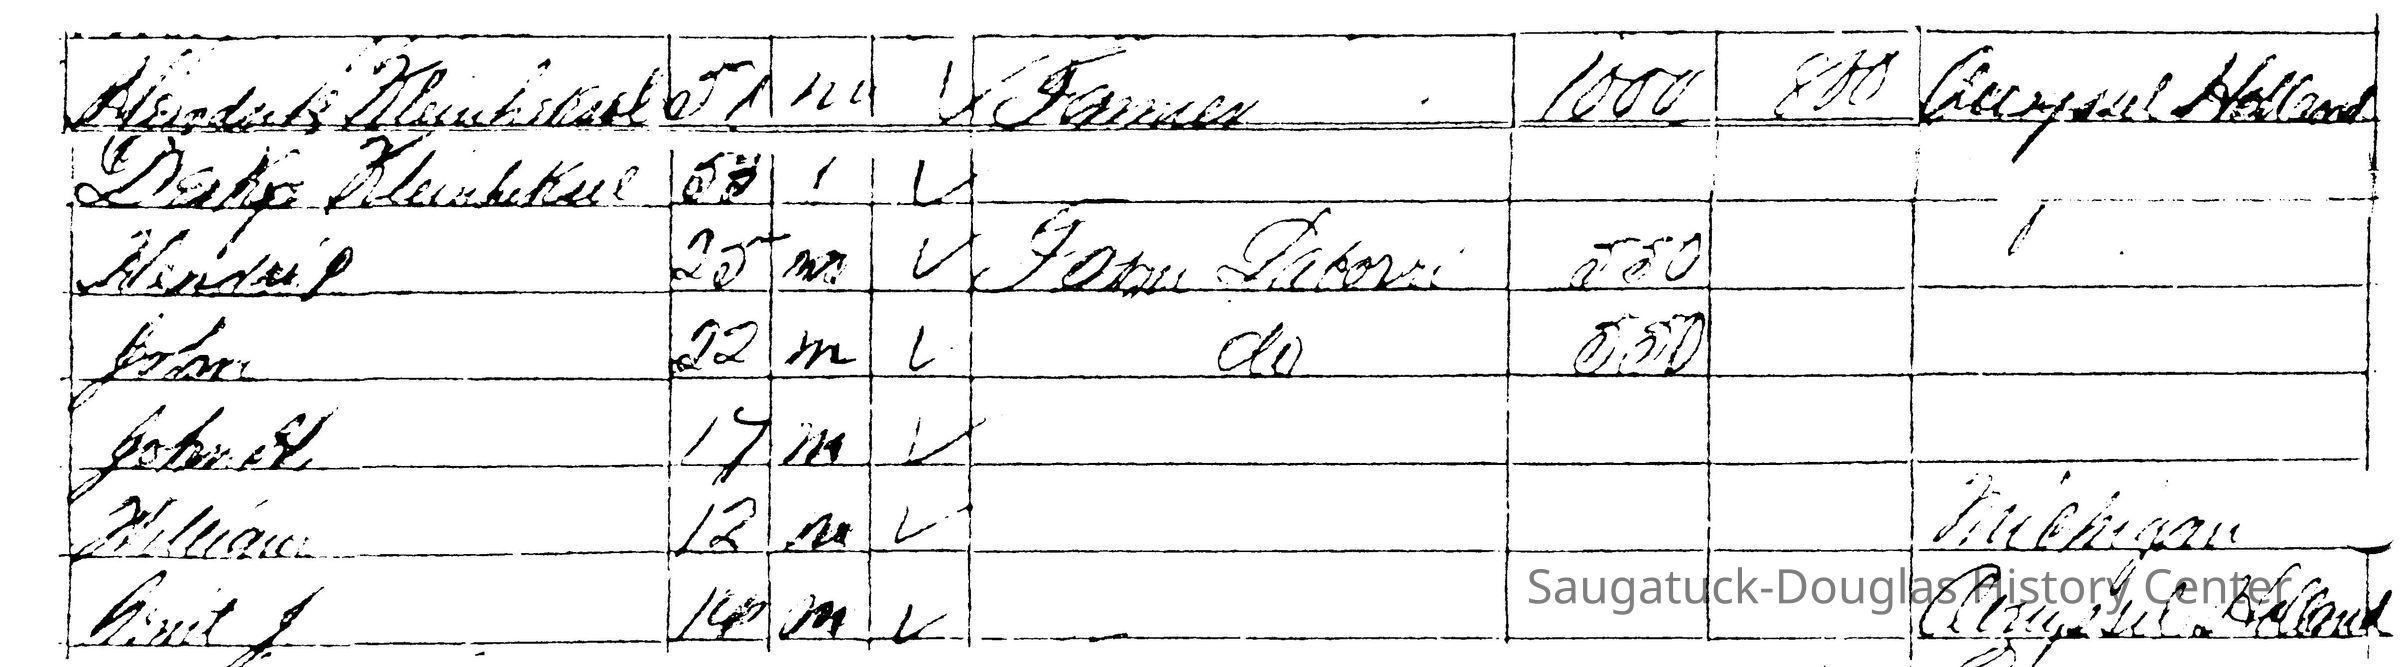 Hendrik Kleinheksel 51 m ✓ Farmer 1000 800 Holland
Kleinheksel ✓
Hendrik 25 m ✓ Farm Laborer 550
John 22 m ✓ do 550
John H. 17 m ✓
William 12 m ✓ Michigan
Gerrit J 14 m ✓ Holland
Saugatuck-Douglas History Center